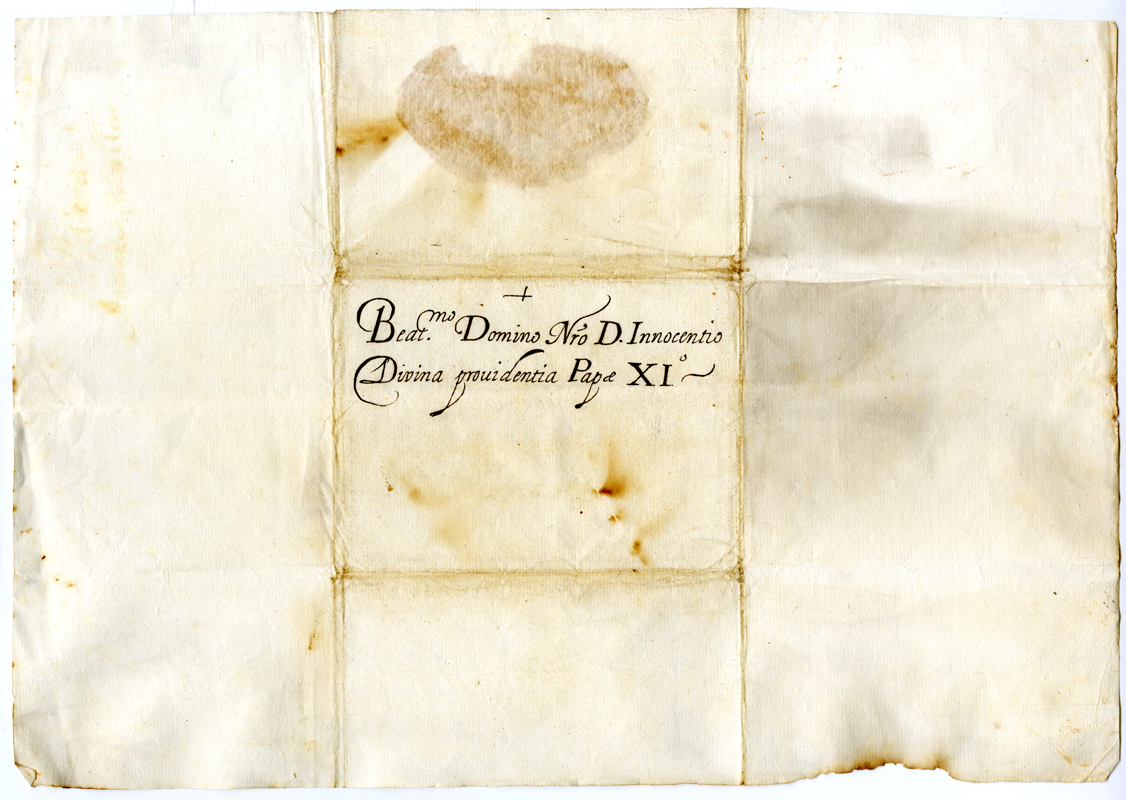 +
Beat.mo Domino Nro D. Innocentio
Divina prouidentia Papæ XI°